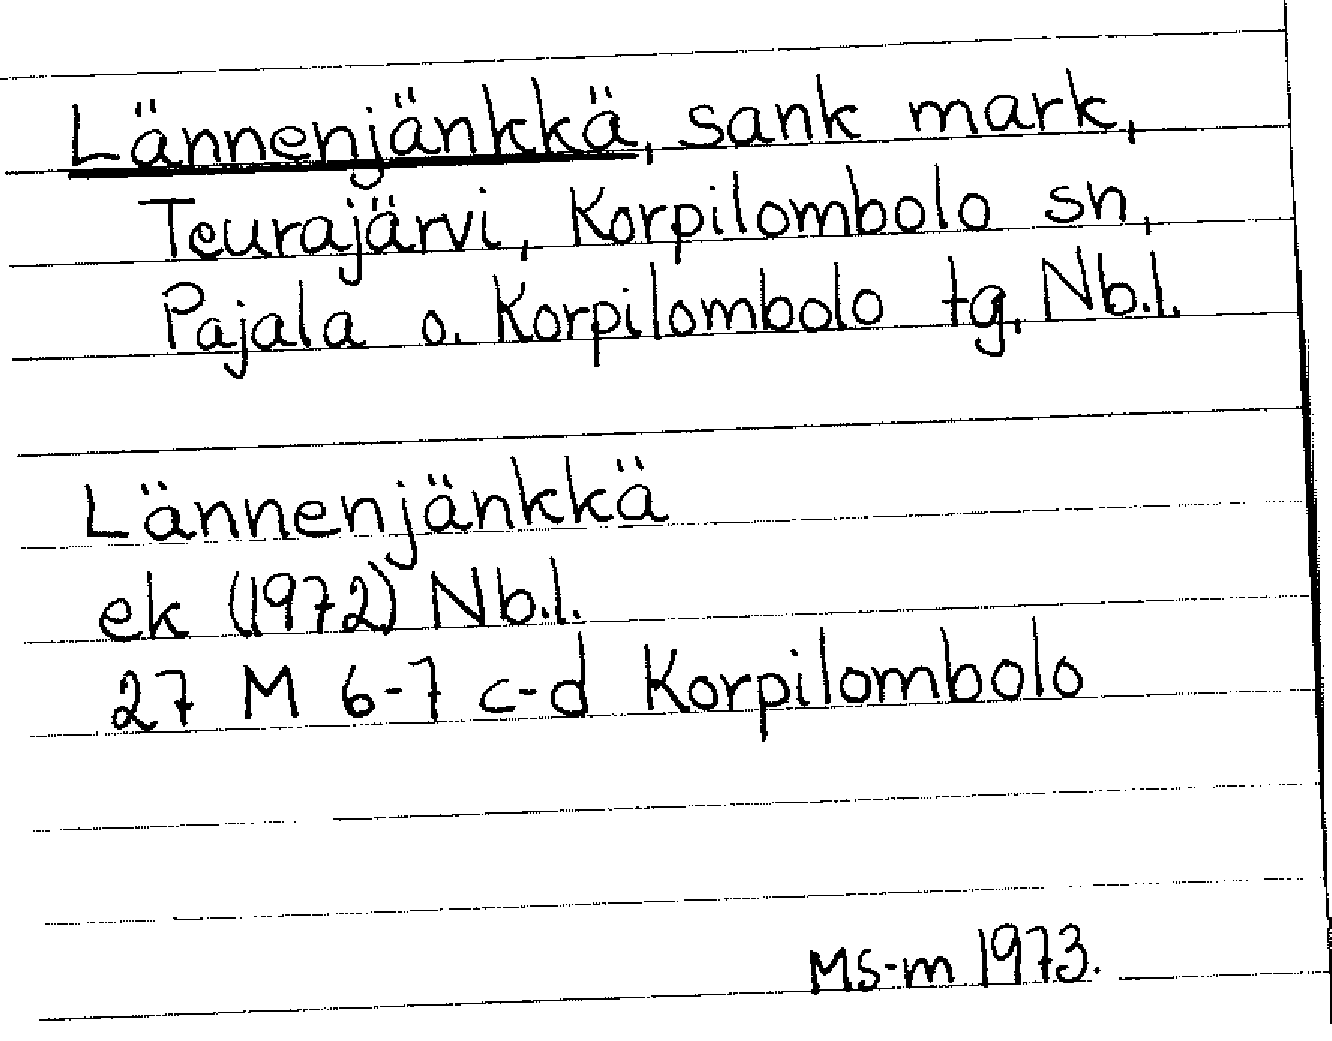 Lännenjänkkä, sank mark,
Teurajärvi, Korpilombolo sn,
Pajala o. Korpilombolo tg, Nb.l.
Lännenjänkkä
ek (1972) Nb.l.
27 M 6-7 c-d Korpilombolo
MS-m 1973.